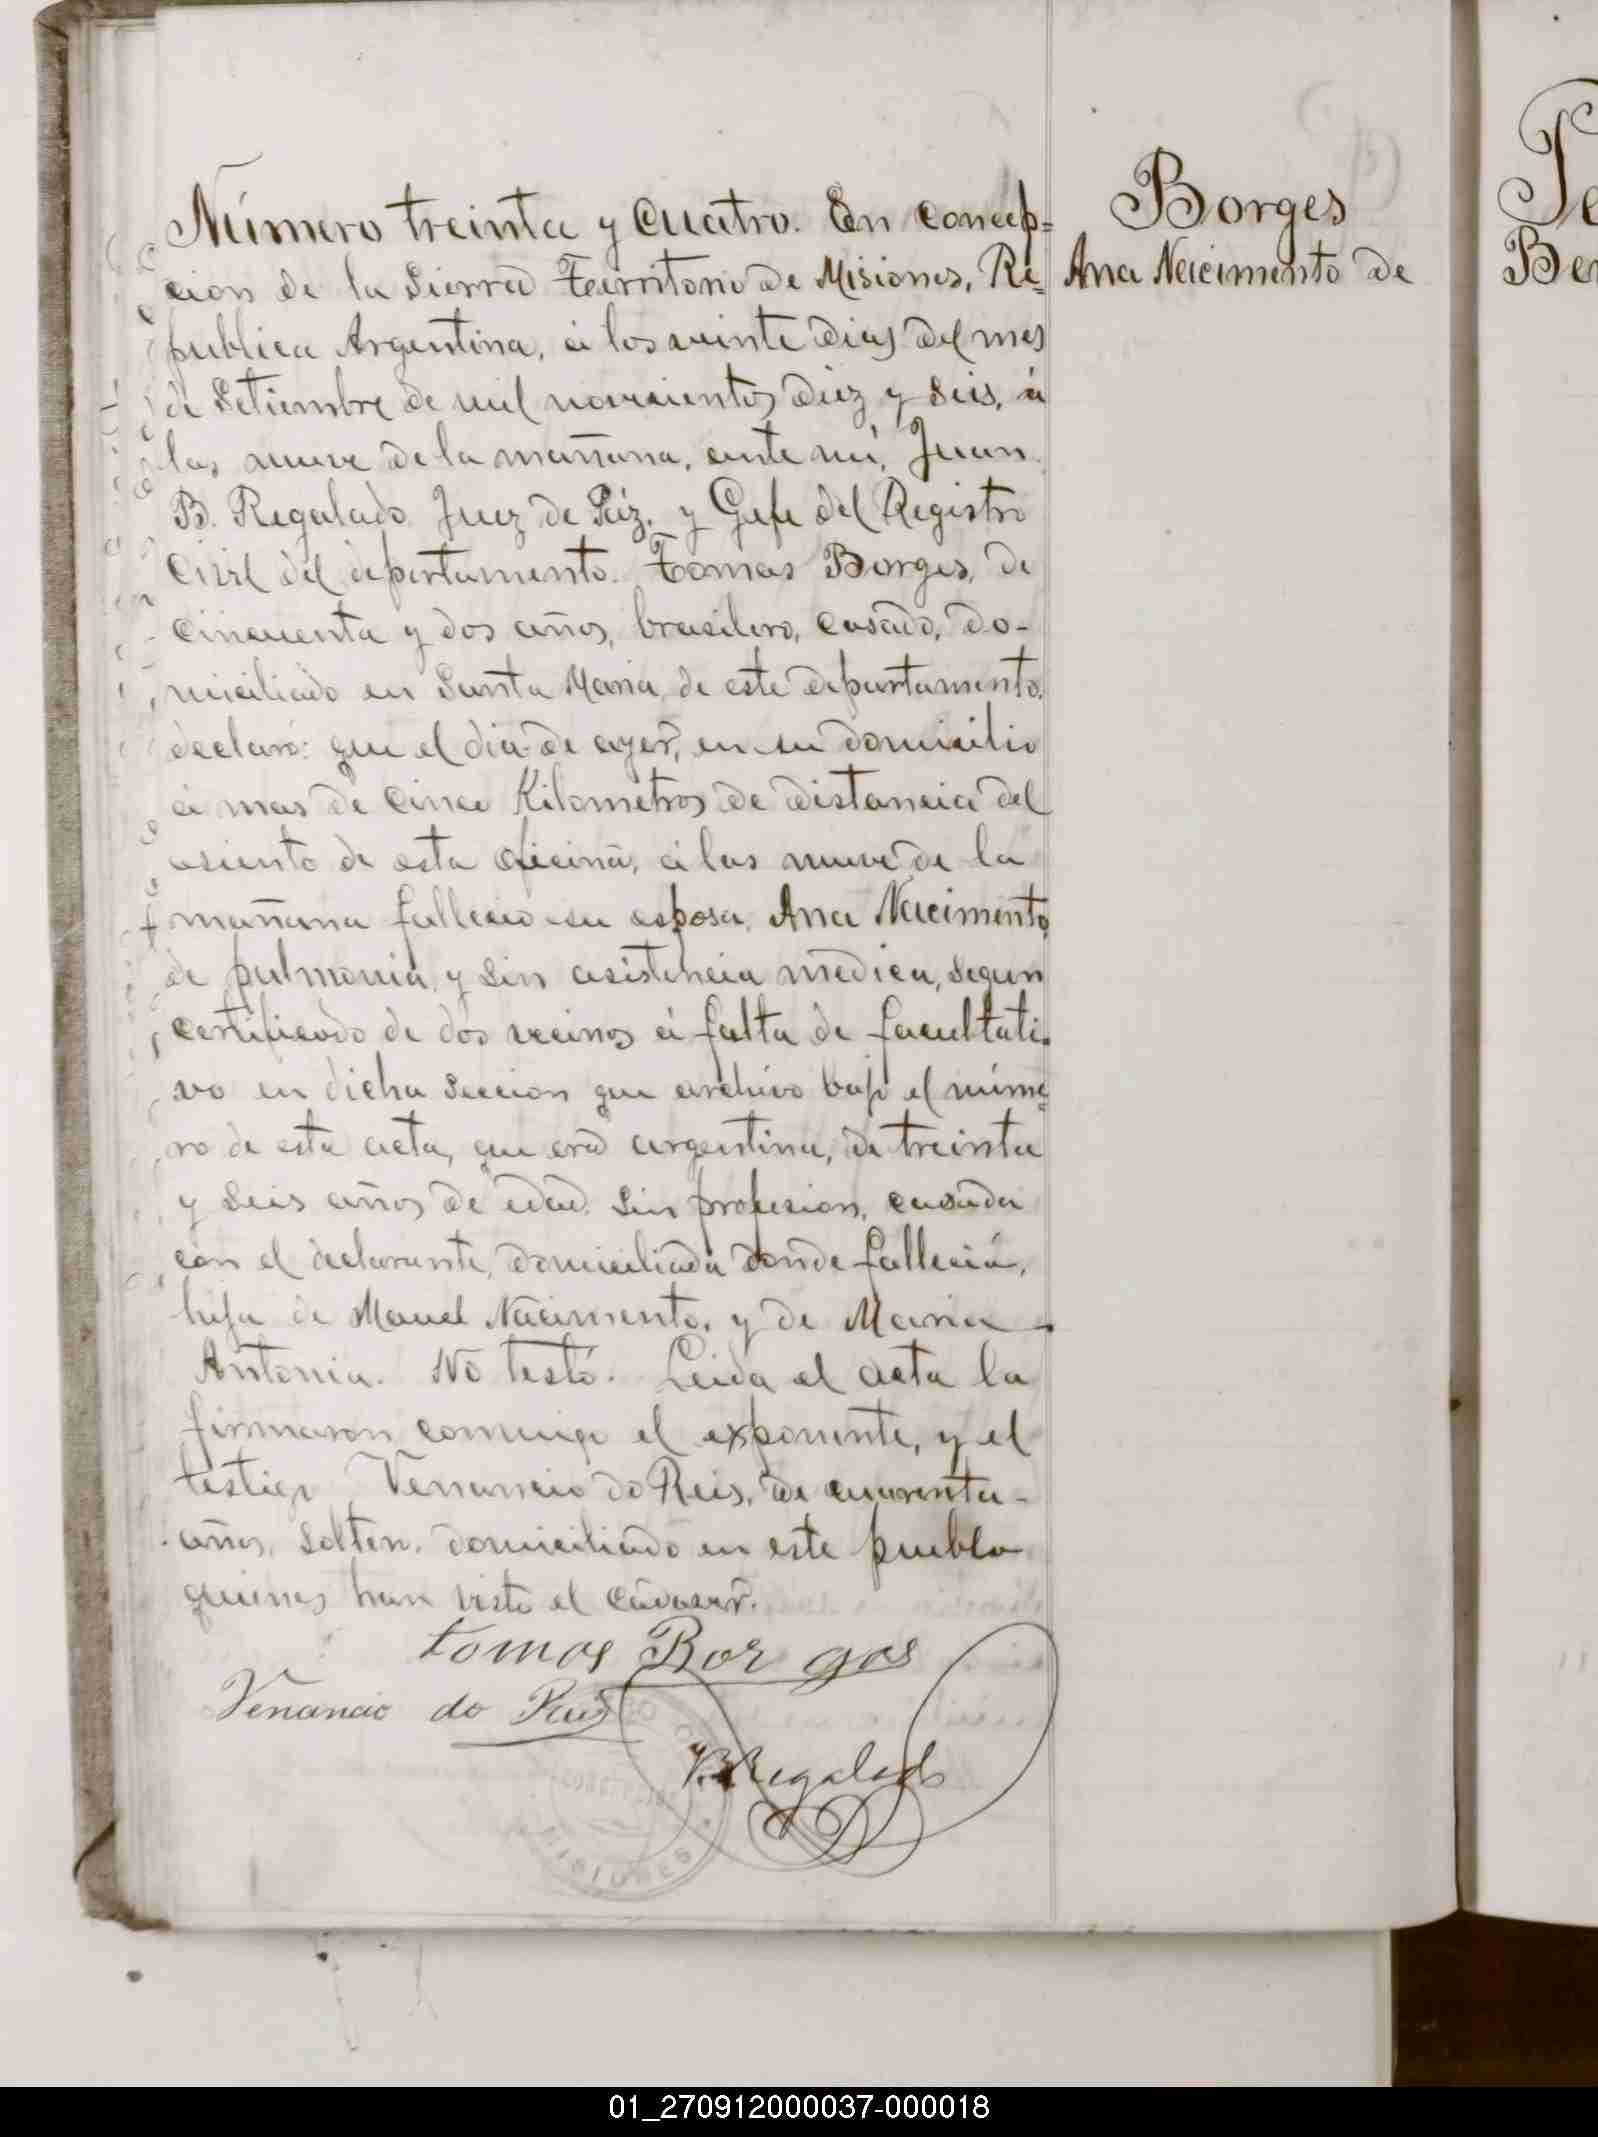 Número treinta y cuatro. En concep=
cion de la Sierra Territorio de Misiones, Re=
publica Argentina, á los veinte dias del mes
de Setiembre de mil novecientos diez y seis, á
las nueve de la mañana, ante mí, Juan
B. Regalado Juez de Páz, y Gefe del Registro
Civil del departamento. Tomas Borges, de
cincuenta y dos años, brasilero, casado, do-
miciliado en Santa Maria, de este departamento,
declaró: que el dia de ayer, en su domicilio
á mas de cinco Kilometros de distancia del
asiento de esta oficina, á las nueve de la
mañana falleció su esposa, Ana Nacimento,
de pulmonia, y sin asistencia medica, segun
certificado de dos vecinos á falta de facultati-
vo en dicha seccion que archivo bajo el núme=
ro de esta acta, que era argentina, de treinta
y seis años de edad, sin profesion, casada
con el declarante, domiciliada donde falleció,
hija de Manuel Nacimento, y de Maria
Antonia. No testó. Leida el acta la
firmaron conmigo el exponente, y el
testigo Venancio do Reis, de cuarenta-
años, soltero, domiciliado en este pueblo
quienes han visto el cádaver.
tomas Borges
Venancio do Reis
B Regalado
MISIONES
Borges
Ana Nacimento de
Be
01_270912000037-000018